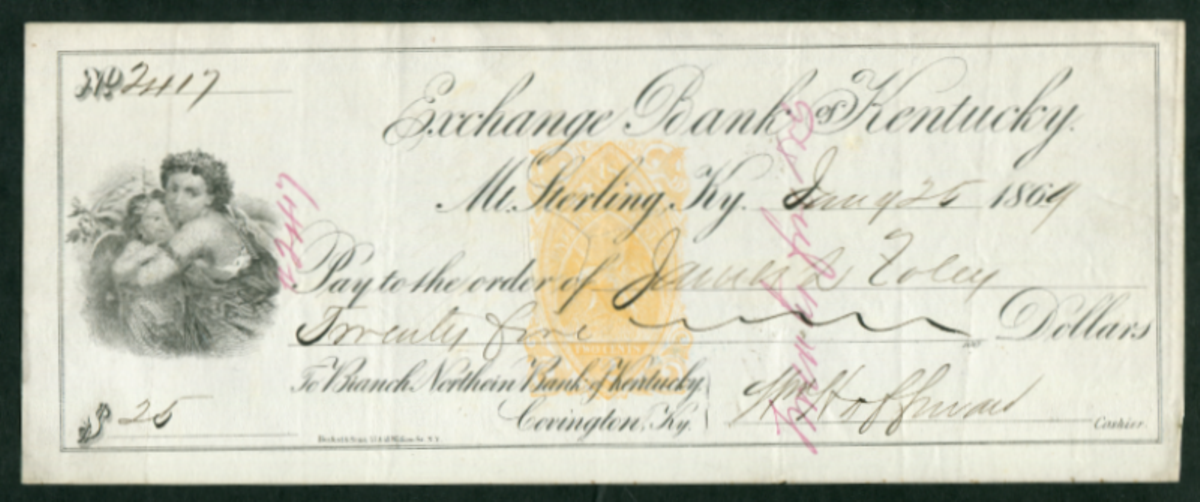 No 2417
Exchange Bank of Kentucky.
Mt. Sterling, Ky. Jany 25 1869
Pay to the order of James Foley
Twenty five Dollars
To Branch Northern Bank of Kentucky
Covington, Ky.
Wm Hoffman Cashier.
$ 25
TWO CENTS